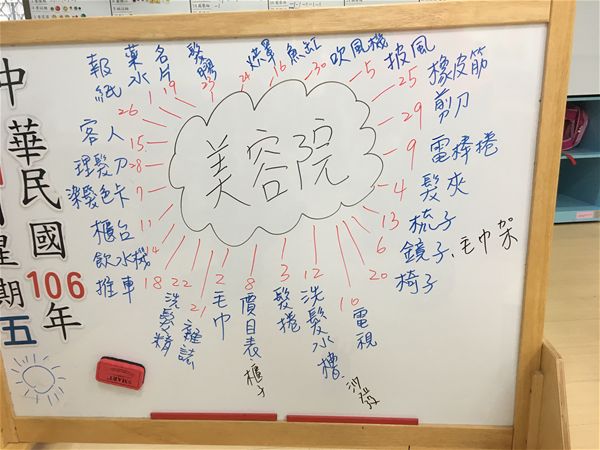 中華民國106年
星期五
美容院
報紙 26
藥水 1
名片 19
髮膠 23
燈罩 24
魚缸 16
吹風機 30
披風 5
橡皮筋 25
剪刀 29
電棒捲 9
髮夾 4
梳子 13
鏡子、毛巾架 6
椅子 20
電視 10
洗髮水槽 12
沙發
髮捲 3
價目表 8
櫃子
毛巾 2
雜誌 21
洗髮精 22
推車 18
飲水機 14
櫃台 11
染髮色卡 7
理髮刀 28
客人 15
SMART